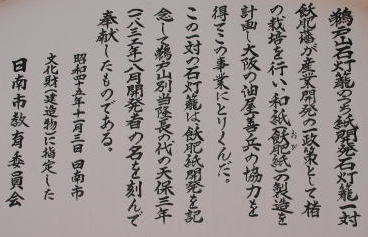 鵜戸山石灯籠のうち紙開発石灯籠一対
飫肥藩が産業開発の一政策として楮
の栽培を行い、和紙(飫肥紙)の製造を
おび
計画し大阪の油屋善兵の協力を
得てこの事業にとりくんだ。
この一対の石灯籠は飫肥紙開発を記
念して鵜戸山別当隆長の代の天保三年
(一八三二年)八月開発者の名を刻んで
奉献したものである。
昭和四十五年十一月三日 日南市
文化財(建造物)に指定した
日南市教育委員会